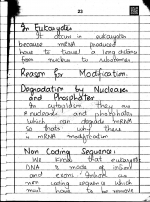 23
In Eukaryotes
It occurs in eukaryotes
because mRNA produced
have to travel a long distance
from nucleus to ribosomes.
Reason for Modification.
Degradation by Nucleases
and Phosphatases
In cytoplasm they are
nucleases and phosphatases
which can degrade mRNA
so thats why there
is mRNA modification
Non Coding Sequence:
We know that eukaryotic
DNA is made of introns
and exons. Introns are
non coding sequence which
must have to be remove